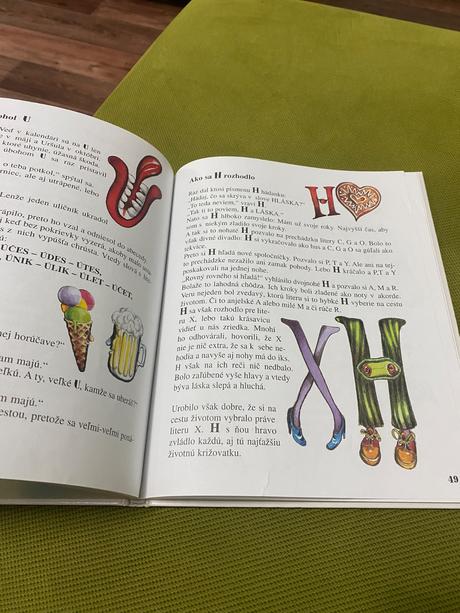 ohol U
Veď v kalendári sú na U len
v máji a Uršula v októbri,
ktoré uhynie, úžasná škoda.
úbohom U sa raz pristavil
o teba potkol,“ spýtal sa.
alebo
Lenže jeden uličník ukradol
preto ho vzal a odniesol do abecedy.
bez pokrievky vyzerá, akoby malo
z nich vypúšťa chrústa. Vtedy slová s
ÚČES – ÚDES – ÚTES,
ÚNIK – ÚLIK – ÚLET – ÚČET,
nej horúčave?“
am majú.“
eľkú. A ty, veľké U, kamže sa uberáš?“
am majú.“
estou, pretože sa veľmi-veľmi poná-
Ako sa H rozhodlo
Raz dal ktosi písmenu H hádanku:
„Hádaj, čo sa skrýva v slove HLÁSKA?“
„To teda neviem,“ vraví H.
„Tak ti to poviem, H a LÁSKA.“
Nato sa H hlboko zamyslelo: Mám už svoje roky. Najvyšší čas, aby
som s niekým zladilo svoje kroky.
A tak si to nohaté H pozvalo na prechádzku litery C, G a O. Bolo to
však divné divadlo: H si vykračovalo ako hus a C, G a O sa gúľali ako
tekvice.
Preto si H hľadá nové spoločnosti. Pozvalo si P, T a Y. Ale ani na tej-
to prechádzke nezažilo ani zamak pohody. Lebo H kráčalo a P, T a Y
poskakovali na jednej nohe.
„Rovný rovného si hľadá!“ vyhlásilo dvojnohé H a pozvalo si A, M a R.
Bolaže to lahodná chôdza. Ich kroky boli zladené ako noty v akorde.
Veru nejeden bol zvedavý, ktorú literu si to hybké H vyberie na cestu
životom. Či to anjelské A alebo milé M a či rúče R.
H sa však rozhodlo pre lite-
ru X, lebo takú krásavicu
vidieť u nás zriedka. Mnohí
ho odhovárali, hovorili, že X
nie je nič extra, že sa k sebe ne-
hodia a navyše aj nohy má do iks.
H však na ich reči nič nedbalo.
Bolo zaľúbené vyše hlavy a vtedy
býva láska slepá a hluchá.
Urobilo však dobre, že si na
cestu životom vybralo práve
literu X. H s ňou hravo
zvládlo každú, aj tú najťažšiu
životnú križovatku.
U
H
X H
49